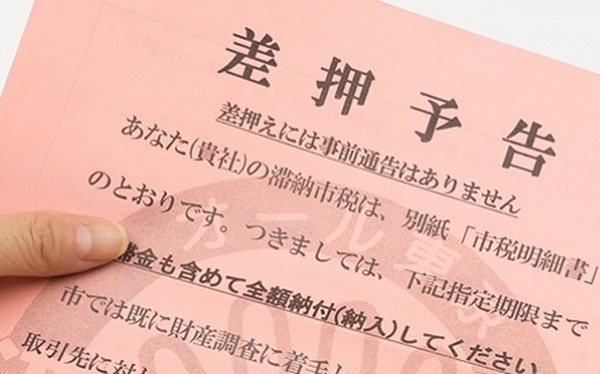 差押予告
差押えには事前通告はありません
あなた(貴社)の滞納市税は、別紙「市税明細書」
のとおりです。つきましては、下記指定期限まで
滞金も含めて全額納付(納入)してください
市では既に財産調査に着手し
取引先に対し
オール東京